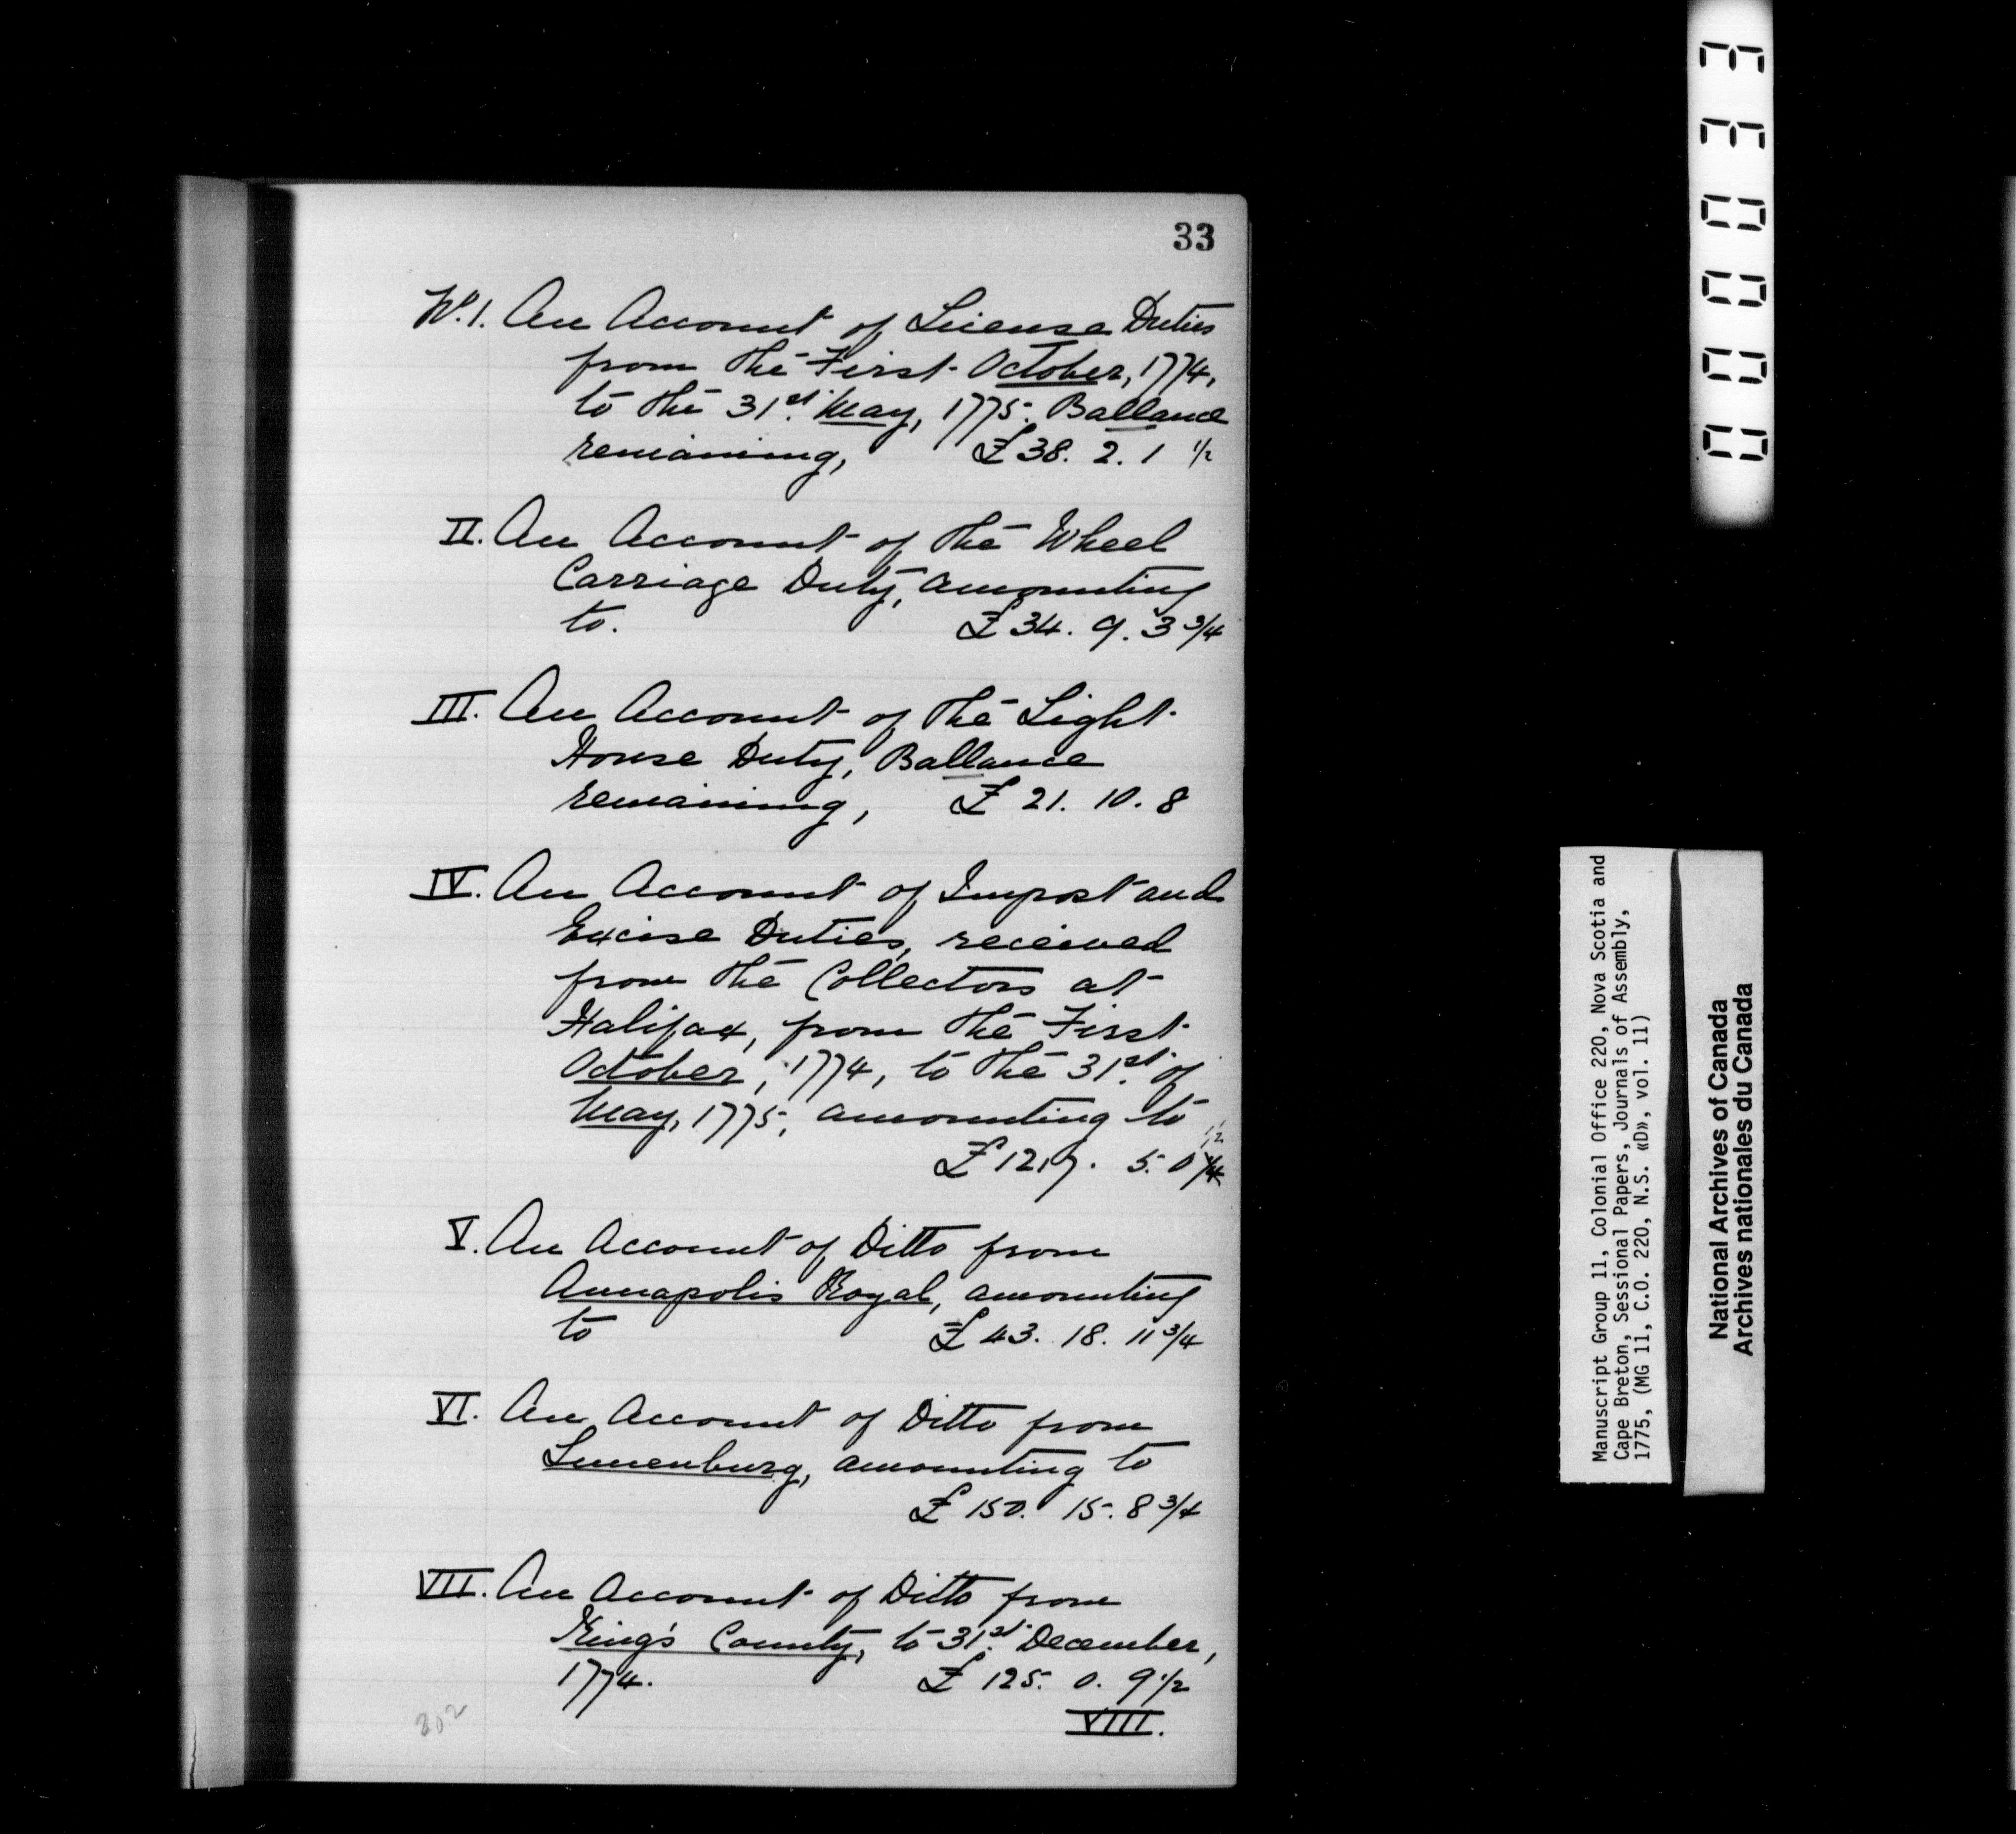 33
No. 1. An Account of License Duties
from the First October, 1774,
to the 31st. May, 1775. Ballance
remaining, £ 38. 2. 1 1/2
II. An Account of the Wheel
Carriage Duty, amounting
to. £ 34. 9. 3 3/4
III. An Account of the Light
House Duty, Ballance
remaining, £ 21. 10. 8
IV. An Account of Impost and
Excise Duties, received
from the Collectors at
Halifax, from the First
October, 1774, to the 31st. of
May, 1775, amounting to
£ 1217. 5. 0 1/2
V. An Account of Ditto from
Annapolis Royal, amounting
to £ 43. 18. 11 3/4
VI. An Account of Ditto from
Lunenburg, amounting to
£ 150. 15. 8 3/4
VII. An Account of Ditto from
King's County, to 31st. December,
1774. £ 125. 0. 9 1/2
VIII.
202
000033
Manuscript Group 11, Colonial Office 220, Nova Scotia and
Cape Breton, Sessional Papers, Journals of Assembly,
1775, (MG 11, C.O. 220, N.S. «D», vol. 11)
National Archives of Canada
Archives nationales du Canada